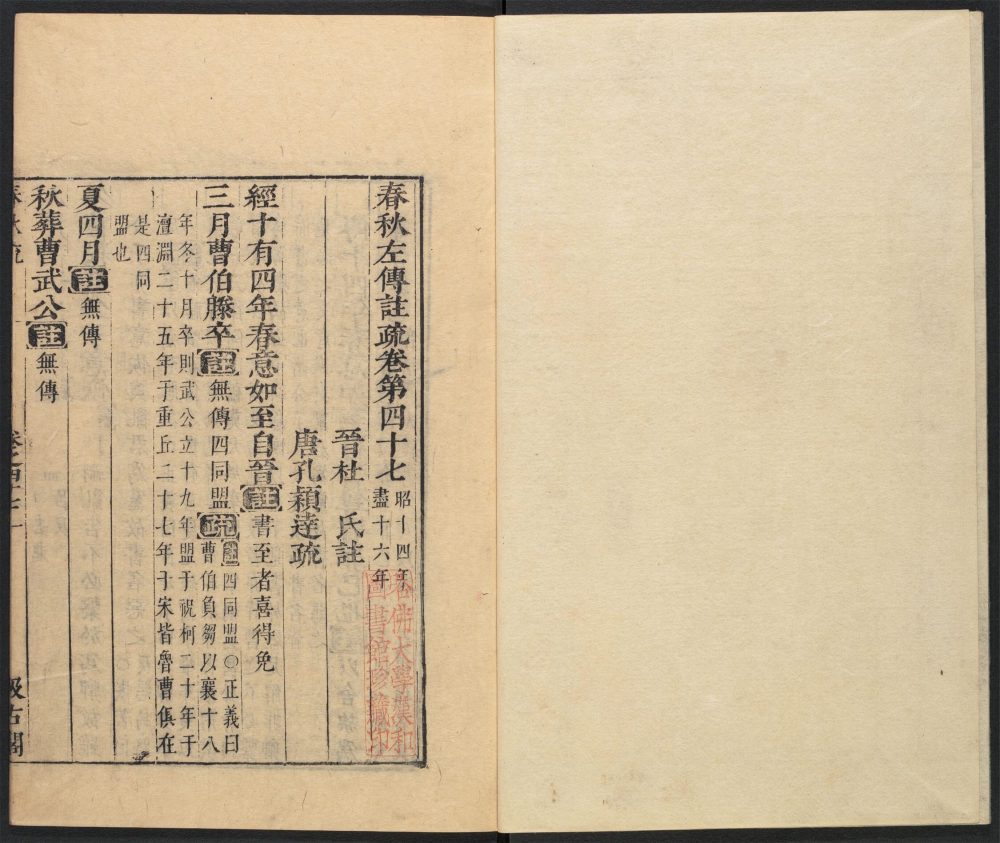 春秋左傳註疏卷第四十七 昭十四年
盡十六年
晉杜 氏註
唐孔穎達疏
經十有四年春意如至自晉 註 書至者喜得免
三月曹伯滕卒 註 無傳四同盟 疏 註 四同盟○正義曰
曹伯負芻以襄十八
年冬十月卒則武公立十九年盟于祝柯二十年于
澶淵二十五年于重丘二十七年于宋皆魯曹俱在
是四同
盟也
夏四月 註 無傳
秋葬曹武公 註 無傳
春秋疏 卷之四十七 一 汲古閣
哈佛大學漢和
圖書館珍藏印